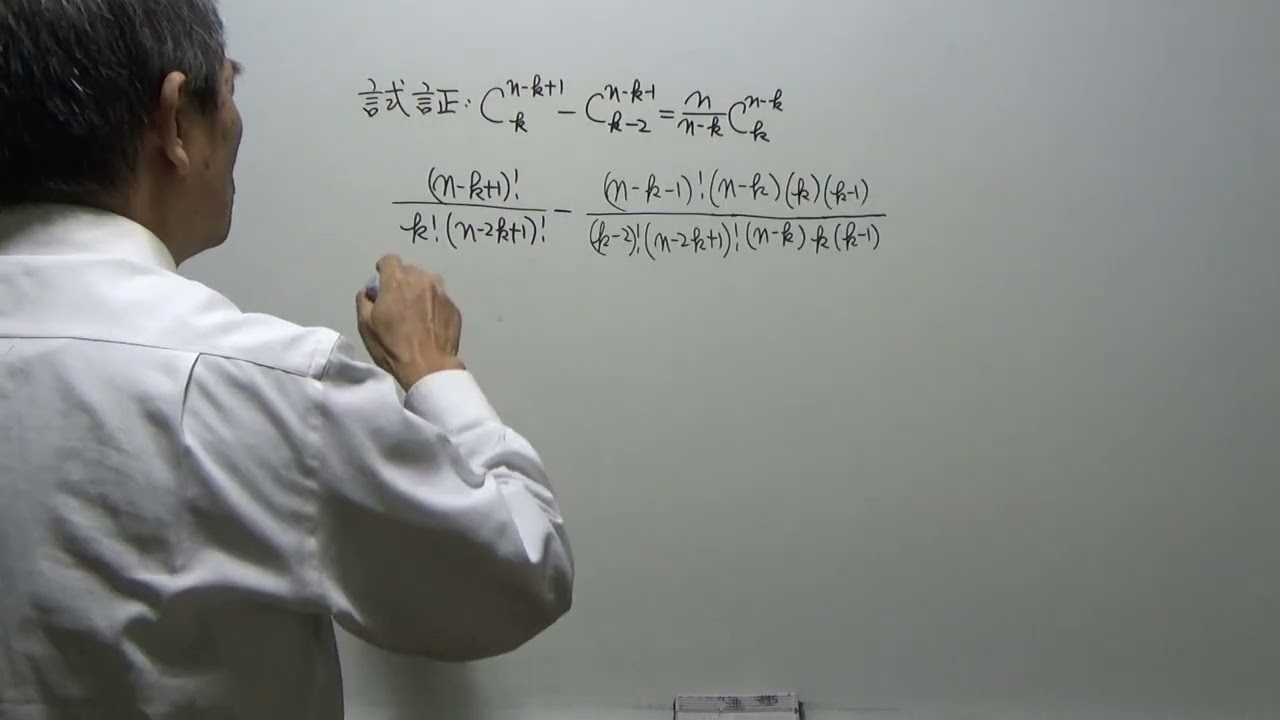 試証: C^{n-k+1}_{k} - C^{n-k-1}_{k-2} = \frac{n}{n-k} C^{n-k}_{k}
\frac{(n-k+1)!}{k!(n-2k+1)!} - \frac{(n-k-1)!(n-k)(k)(k-1)}{(k-2)!(n-2k+1)!(n-k)k(k-1)}